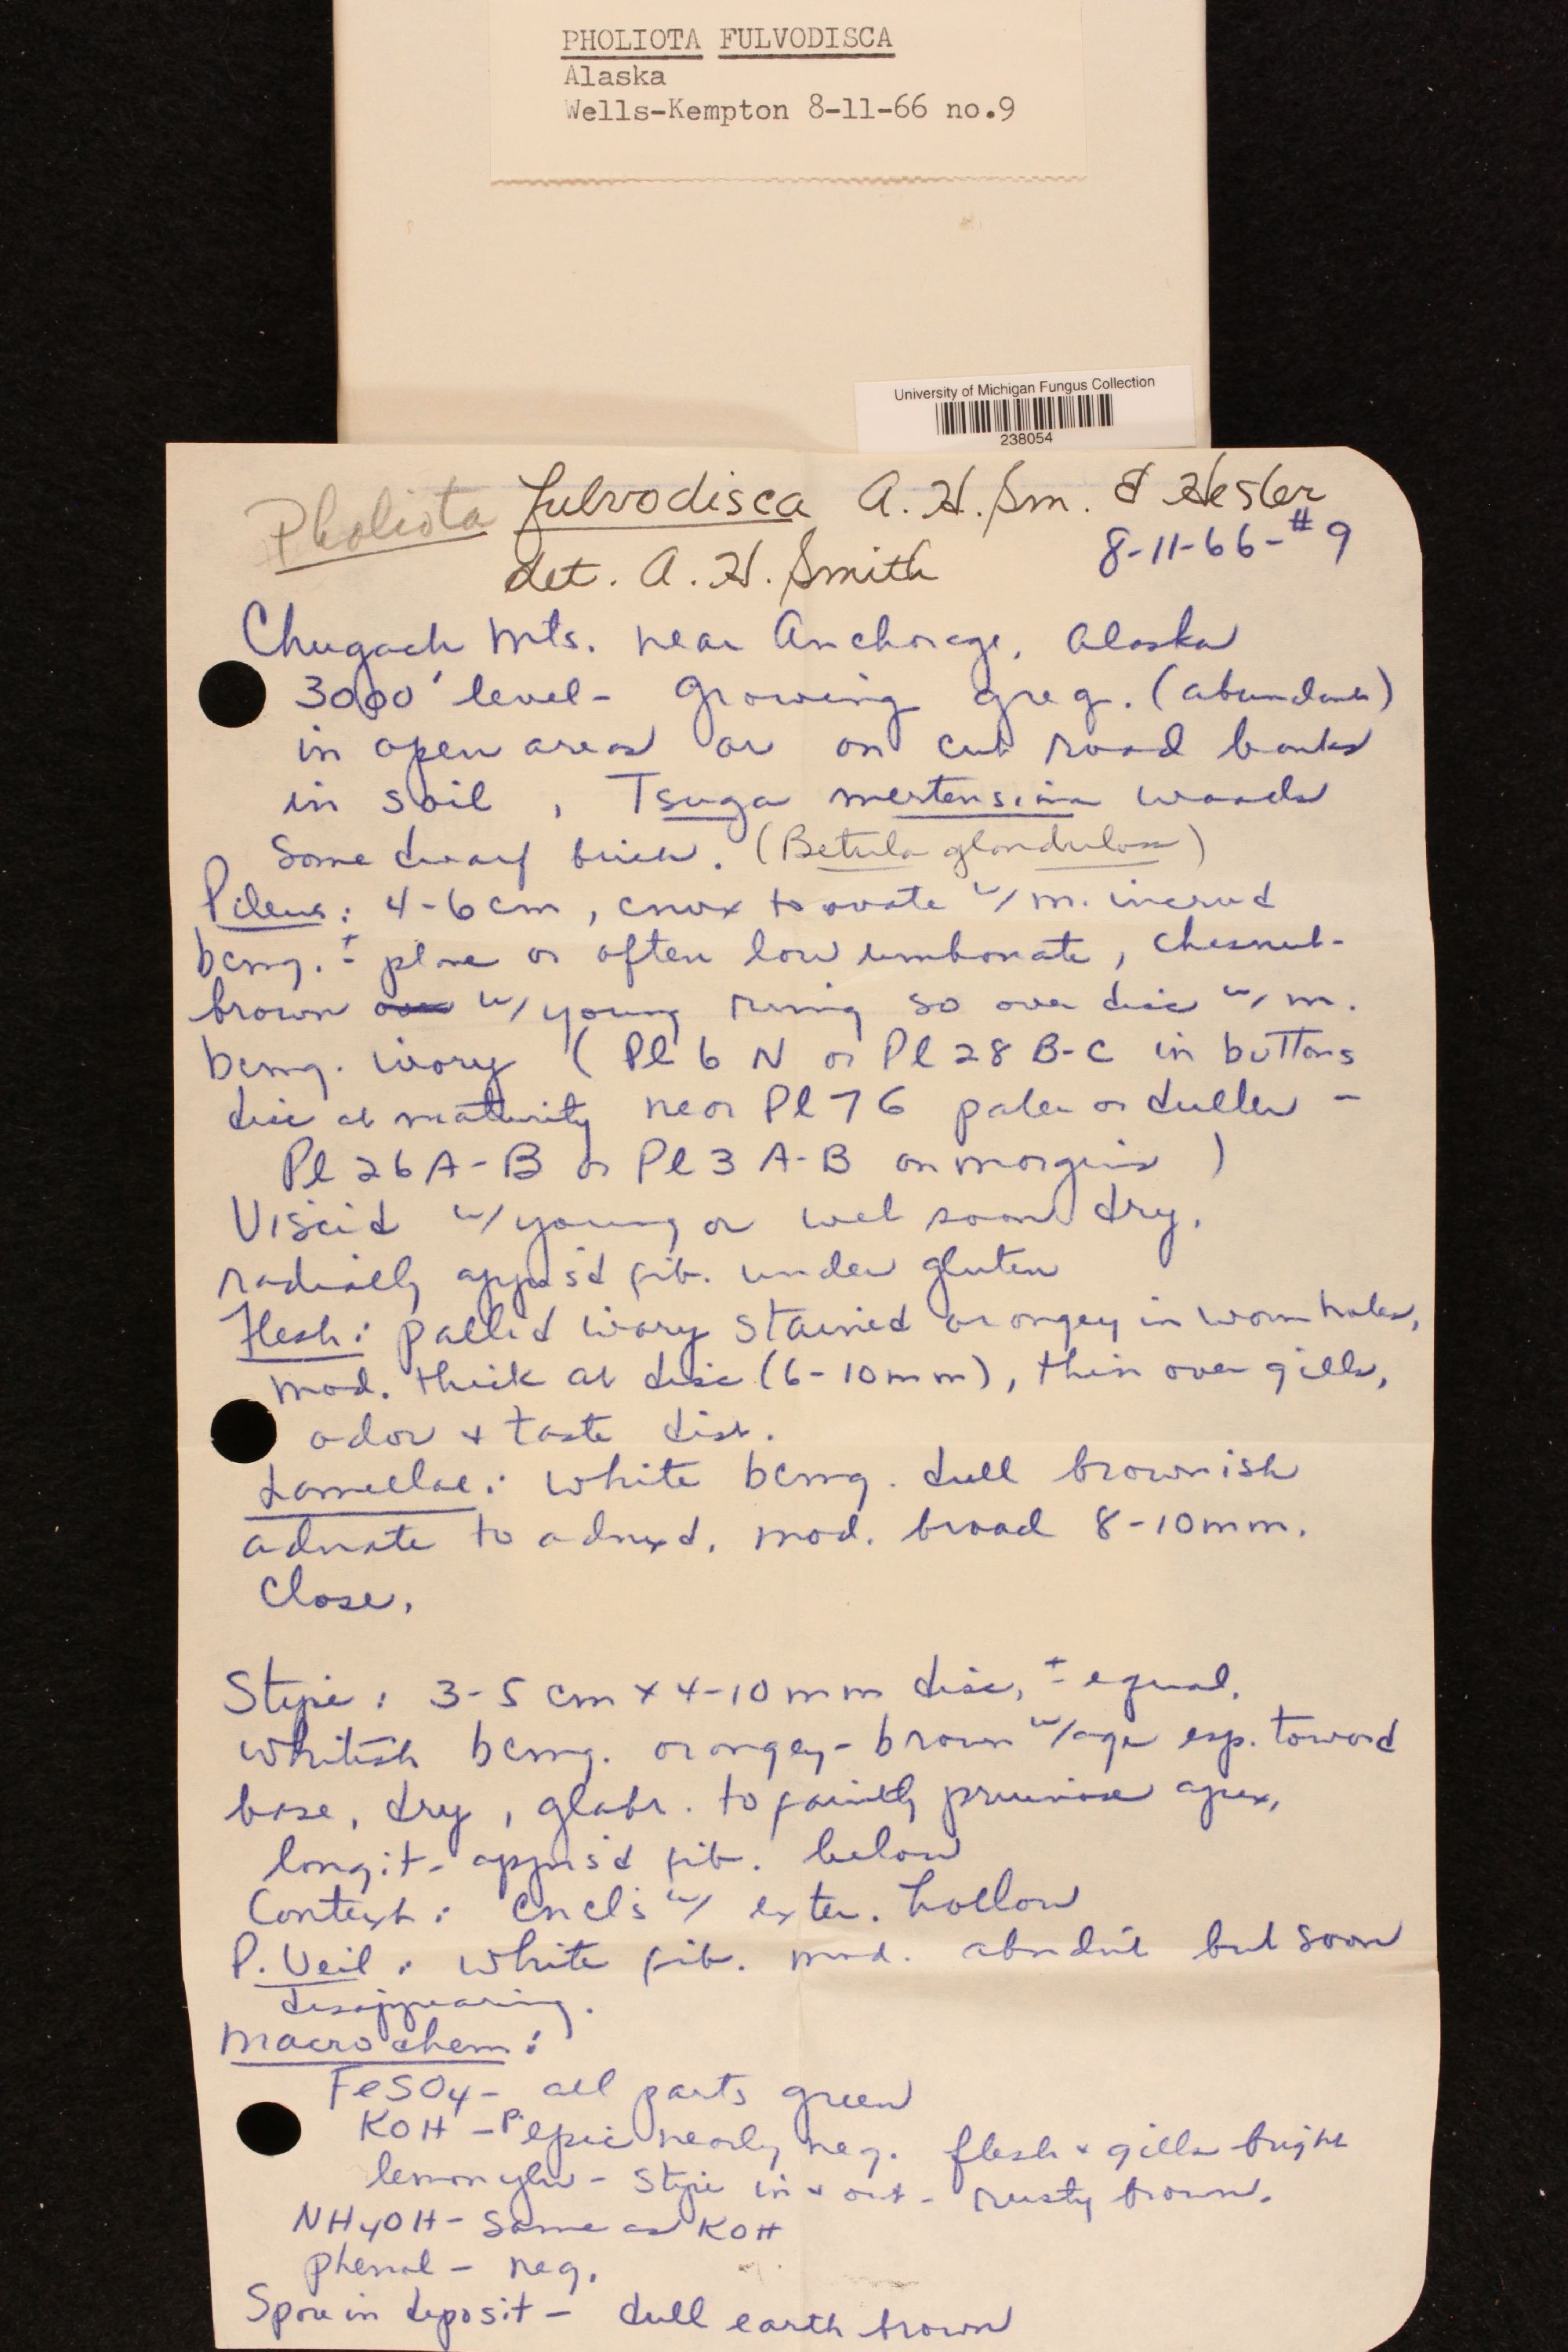 PHOLIOTA FULVODISCA
Alaska
Wells-Kempton 8-11-66 no.9
University of Michigan Fungus Collection
238054
Pholiota fulvodisca A. H. Sm. & Hesler
8-11-66-#9
det. A. H. Smith
Chugach Mts. near Anchorage, Alaska
3000' level- growing greg. (abundant)
in open areas or on cut road banks
in soil, Tsuga mertensiana woods
Some dwarf birch. (Betula glandulosa)
Pileus: 4-6 cm, cnvx to ovate w/ m. incrvd
bcmg. ± plane or often low umbonate, chesnut-
brown w/ young rming so over disc w/ m.
bcmg. ivory (Pl 6 N or Pl 28 B-C in buttons
disc at maturity near Pl 7 G paler or duller -
Pl 26 A-B or Pl 3 A-B on margins)
Viscid w/ young or wet soon dry.
radially apprs'd fib. under gluten
Flesh: pallid ivory stained orangey in worm holes,
mod. thick at disc (6-10mm), thin over gills,
odor + taste dist.
Lamellae: white bcmg. dull brownish
adnate to adnxd, mod. broad 8-10mm.
Close.
Stipe: 3-5 cm x 4-10 mm disc, ± equal.
whitish bcmg. orangey-brown w/age esp. toward
base, dry, glabr. to faintly pruinose apex,
longit- apprs'd fib. below
Context: cncl's w/ exter. hollow
P. Veil: white fib. mod. abndnt but soon
disappearing.
Macrochem:
FeSO4- all parts green
KOH - Pilepic nearly neg. flesh + gills bright
lemon ylw - Stipe in + out - rusty brown.
NH4OH- same as KOH
phenol - neg.
Spore in deposit - dull earth brown